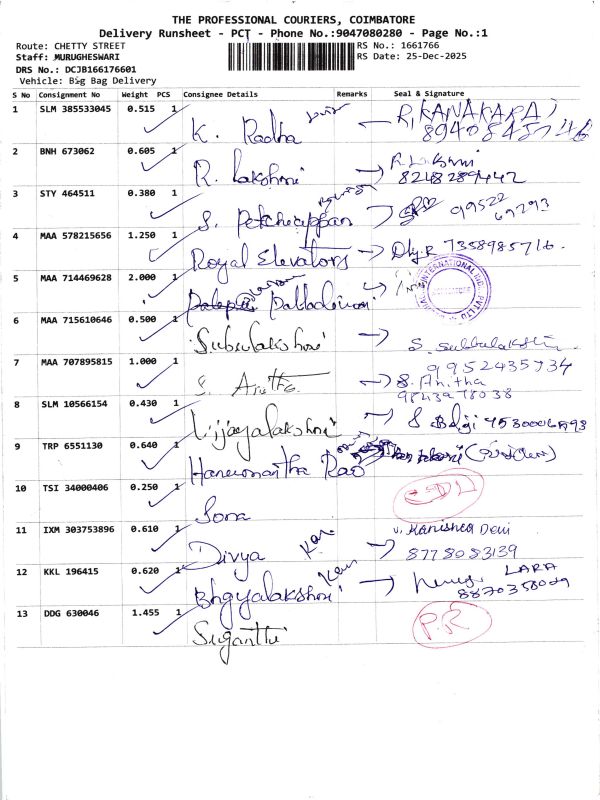 THE PROFESSIONAL COURIERS, COIMBATORE
Delivery Runsheet - PCT - Phone No.:9047080280 - Page No.:1
Route: CHETTY STREET
RS No.: 1661766
Staff: MURUGHESWARI
RS Date: 25-Dec-2025
DRS No.: DCJB166176601
Vehicle: Big Bag Delivery
S No Consignment No Weight PCS Consignee Details Remarks Seal & Signature
1 SLM 385533045 0.515 1 K. Radha
2 BNH 673062 0.605 1 R. Lakshmi 8248289442
3 STY 464511 0.380 1 S. Petcheiappan 99522 69293
4 MAA 578215656 1.250 1 Royal Elevators 7358985716.
5 MAA 714469628 2.000 1
6 MAA 715610646 0.500 1 Subulakshmi S. Subbulakshmi
9952435734
7 MAA 707895815 1.000 1 S. Anitha S. Anitha
9843978038
8 SLM 10566154 0.430 1 Vijayalakshmi
9 TRP 6551130 0.640 1 Hanumantha Rao
10 TSI 34000406 0.250 1 Sona
11 IXM 303753896 0.610 1 Divya V. Kanishka Devi
8778083139
12 KKL 196415 0.620 1 Bhgyalakshmi LARA
8870358029
13 DDG 630046 1.455 1 Suganthi P.R